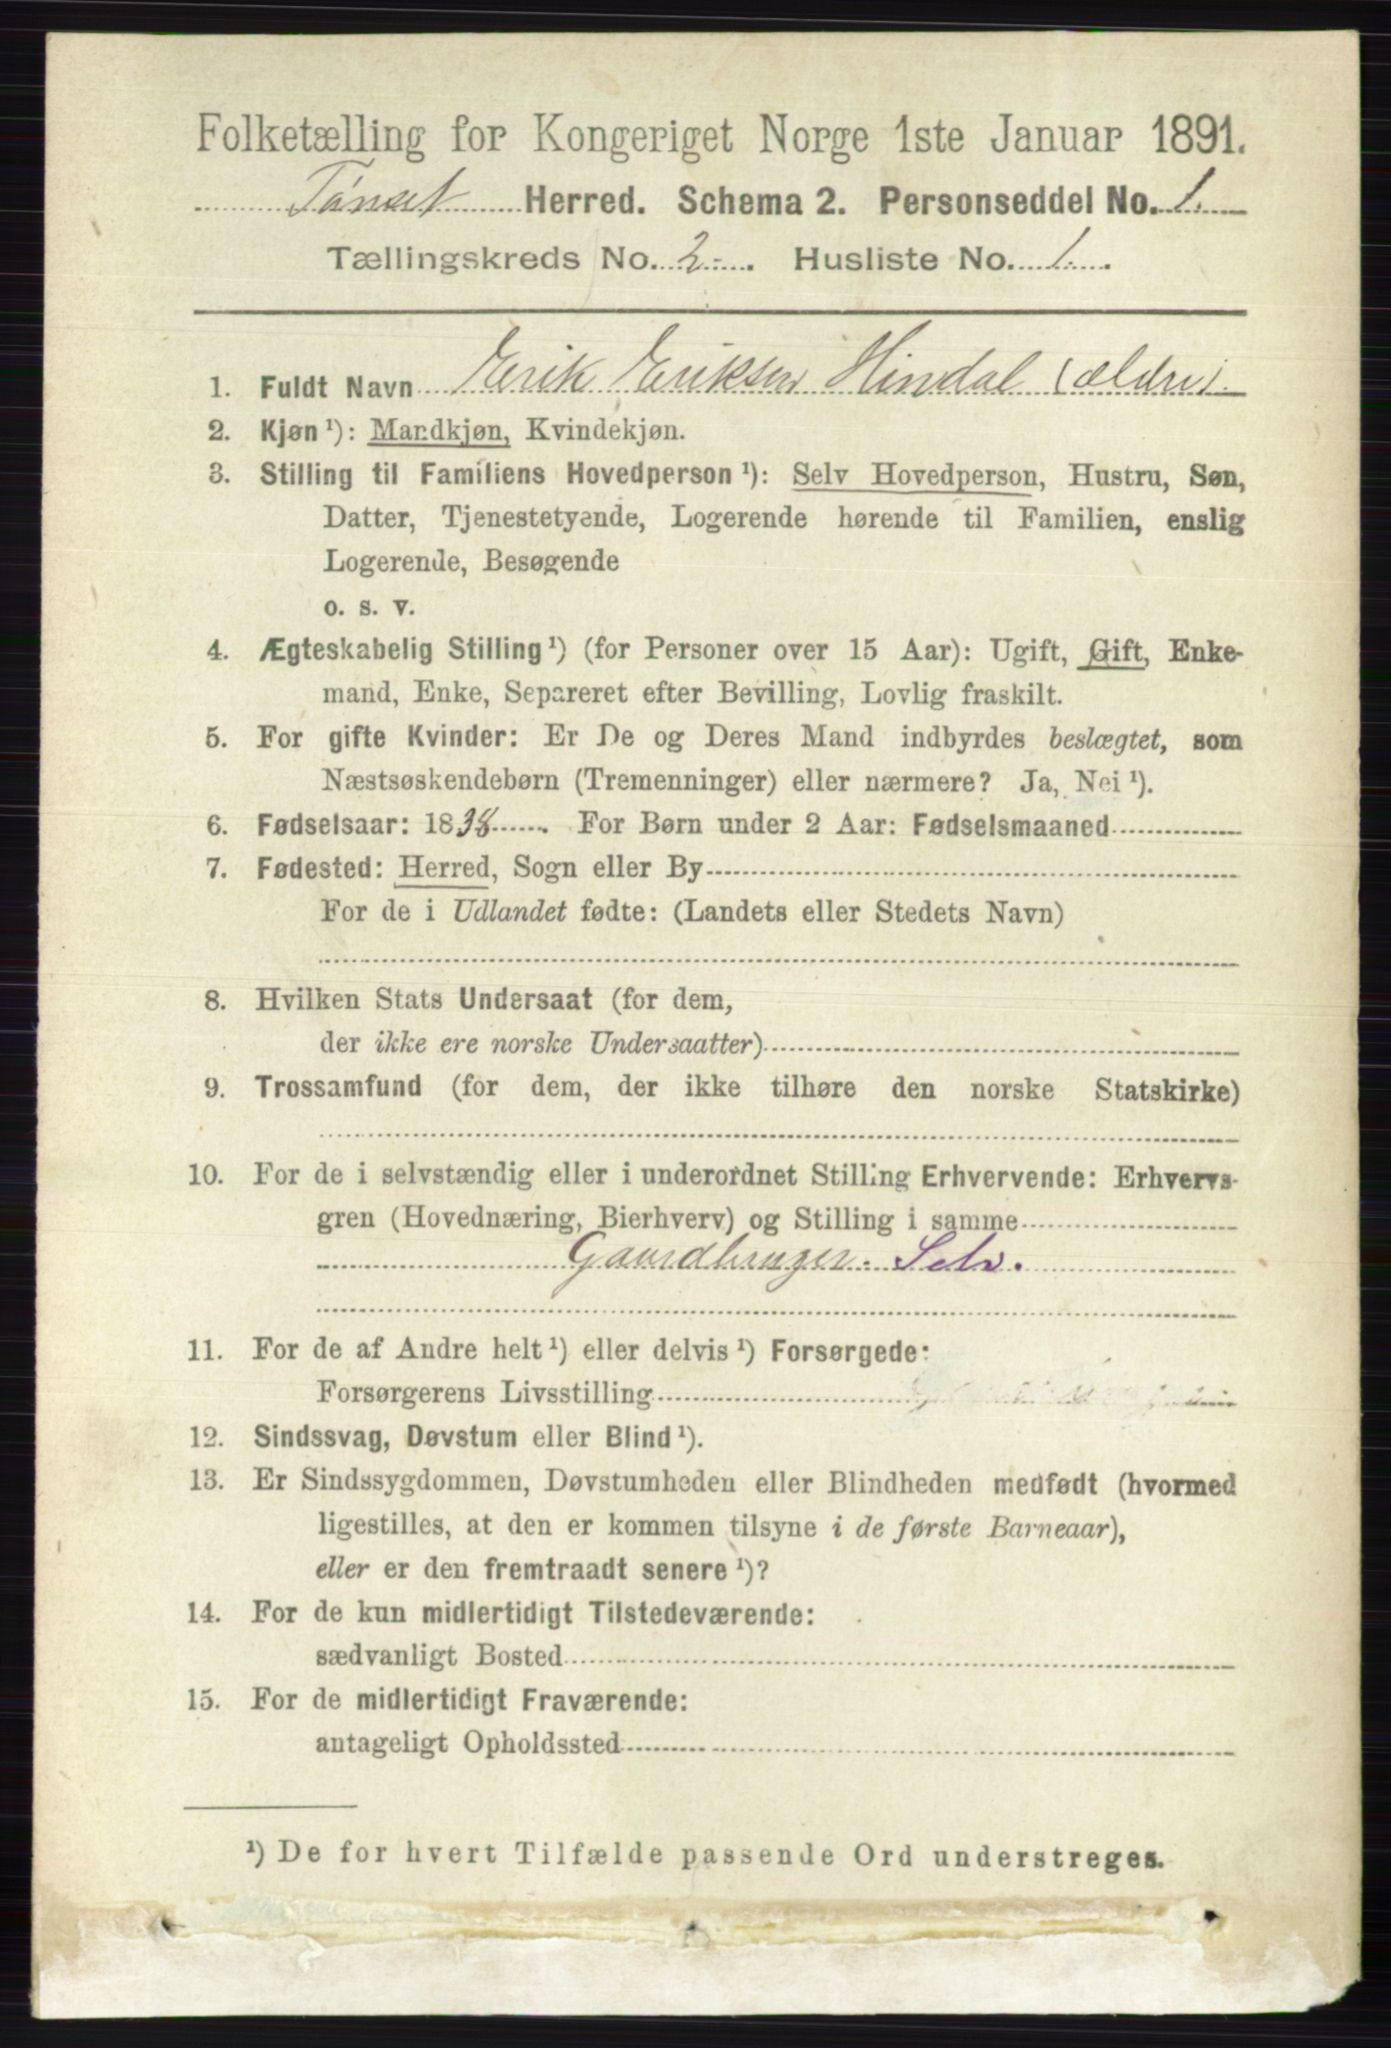 Folketælling for Kongeriget Norge 1ste Januar 1891.
Tönset Herred. Schema 2. Personseddel No. 1.
Tællingskreds No. 2. Husliste No. 1.
1. Fuldt Navn Erik Eriksen Hindal (ældre).
2. Kjøn ¹): Mandkjøn, Kvindekjøn.
3. Stilling til Familiens Hovedperson ¹): Selv Hovedperson, Hustru, Søn,
Datter, Tjenestetyende, Logerende hørende til Familien, enslig
Logerende, Besøgende
o. s. v.
4. Ægteskabelig Stilling ¹) (for Personer over 15 Aar): Ugift, Gift, Enke-
mand, Enke, Separeret efter Bevilling, Lovlig fraskilt.
5. For gifte Kvinder: Er De og Deres Mand indbyrdes beslægtet, som
Næstsøskendebørn (Tremenninger) eller nærmere? Ja, Nei ¹).
6. Fødselsaar: 1838. For Børn under 2 Aar: Fødselsmaaned
7. Fødested: Herred, Sogn eller By
For de i Udlandet fødte: (Landets eller Stedets Navn)
8. Hvilken Stats Undersaat (for dem,
der ikke ere norske Undersaatter)
9. Trossamfund (for dem, der ikke tilhøre den norske Statskirke)
10. For de i selvstændig eller i underordnet Stilling Erhvervende: Erhvervs-
gren (Hovednæring, Bierhverv) og Stilling i samme
Gaardbruger. Selv.
11. For de af Andre helt ¹) eller delvis ¹) Forsørgede:
Forsørgerens Livsstilling
12. Sindssvag, Døvstum eller Blind ¹).
13. Er Sindssygdommen, Døvstumheden eller Blindheden medfødt (hvormed
ligestilles, at den er kommen tilsyne i de første Barneaar),
eller er den fremtraadt senere ¹)?
14. For de kun midlertidigt Tilstedeværende:
sædvanligt Bosted
15. For de midlertidigt Fraværende:
antageligt Opholdssted
¹) De for hvert Tilfælde passende Ord understreges.